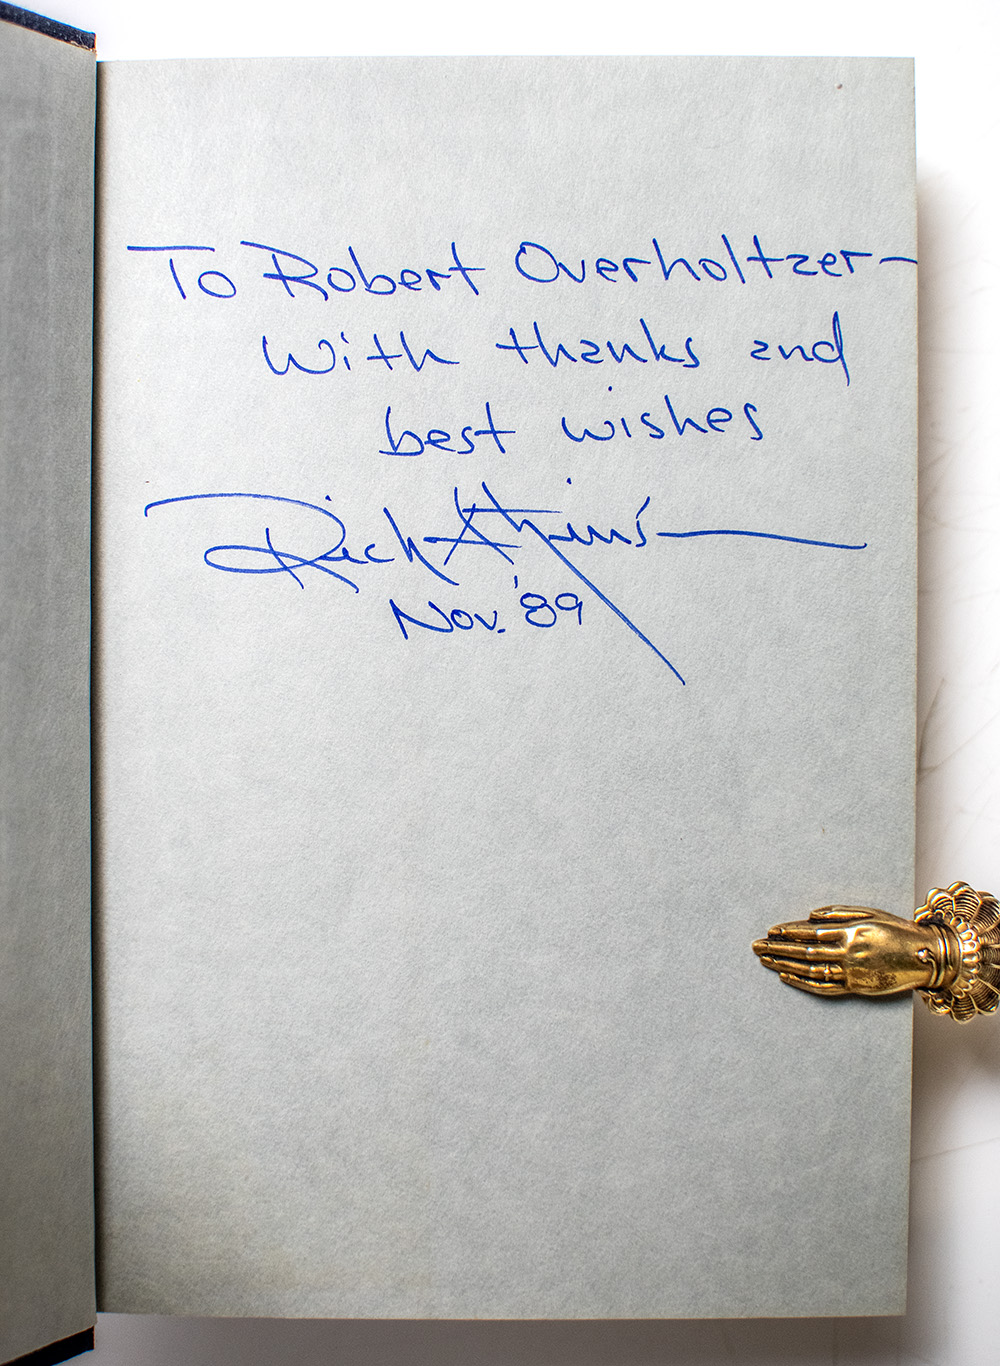 To Robert Overholtzer—
With thanks and
best wishes
Rick Atkinson
Nov. '89